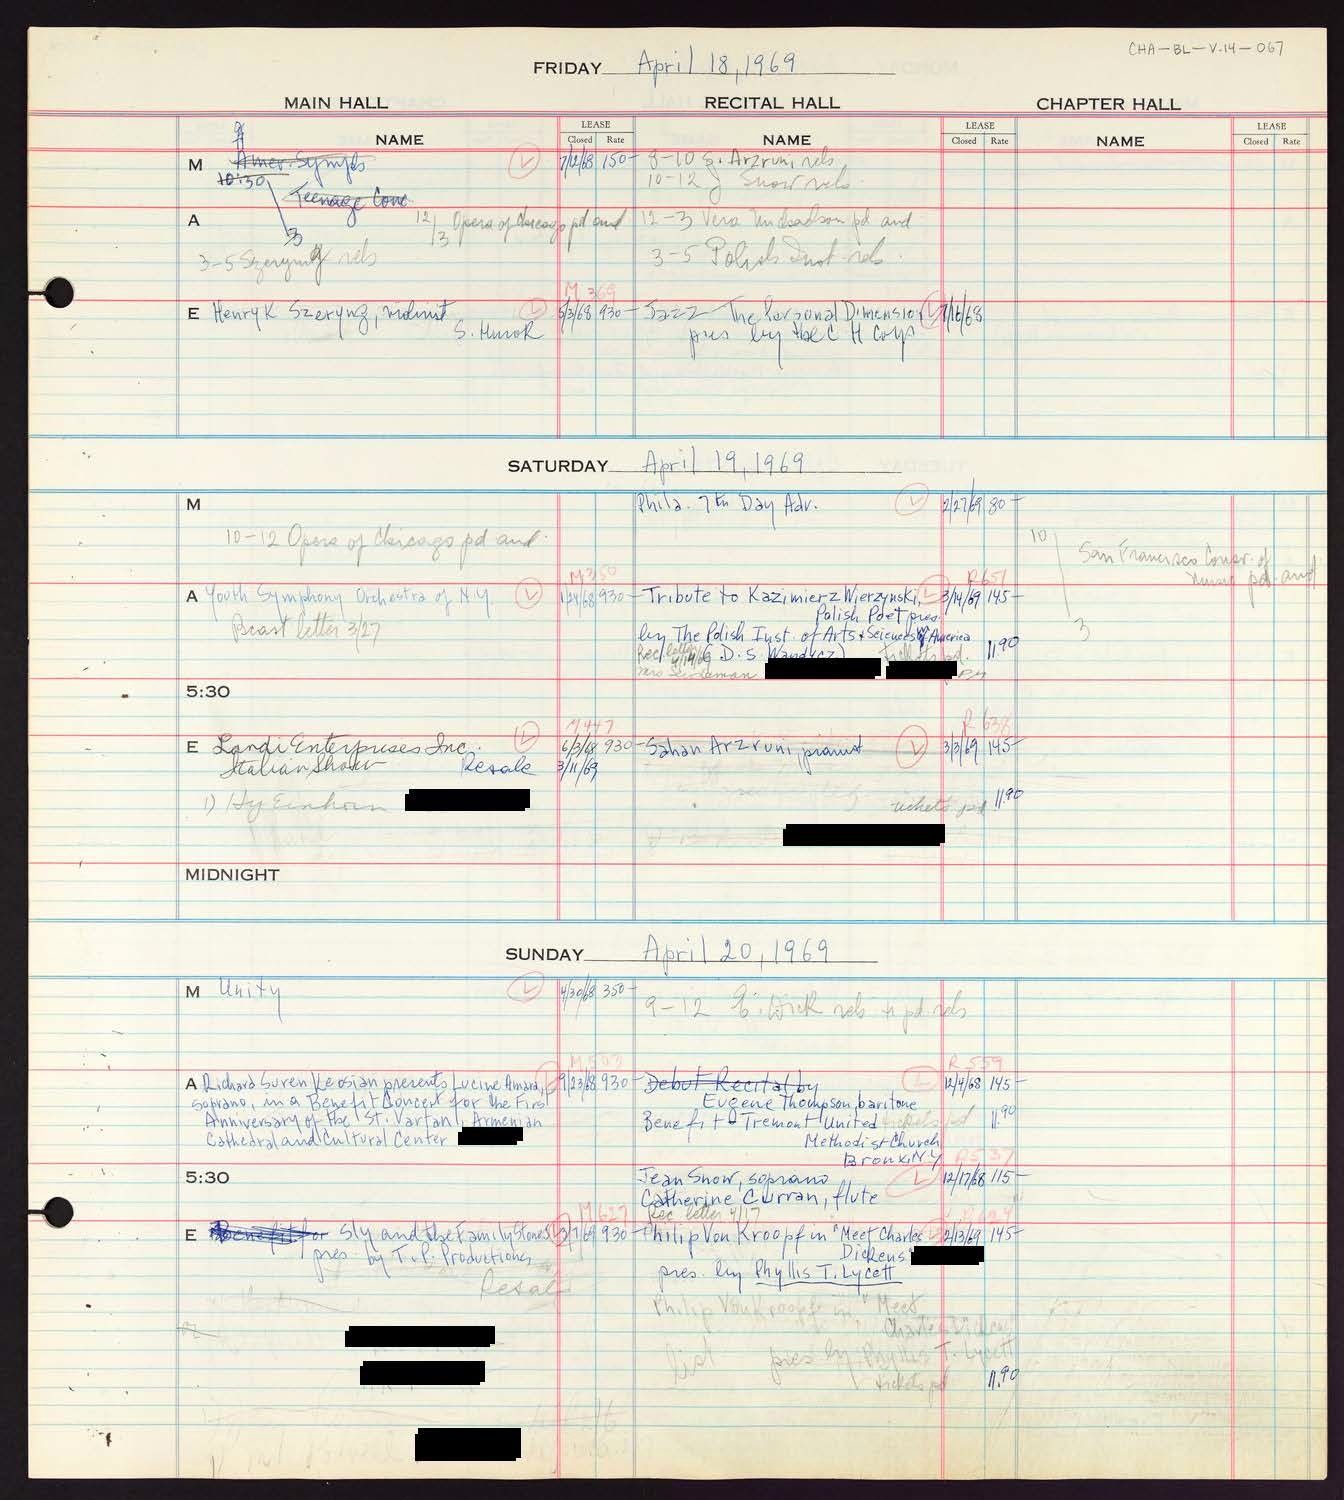 CHA-BL-V.14-067
FRIDAY April 18, 1969
MAIN HALL RECITAL HALL CHAPTER HALL
NAME LEASE Closed Rate NAME LEASE Closed Rate NAME LEASE Closed Rate
M 9 Amer. Symph 7/12/68 150- 8-10 S. Arzruni rels
10:30 10-12 J Snow rels.
Teenage Conc
A 12/3 Opera of Chicago pd and 12-3 Vera pd and
3
3-5 Szeryng rels 3-5 Polish Inst. rels.
M 369
E Henryk Szeryng, violinist 5/3/68 930- Jazz The Personal Dimension 7/16/68
S. Hurok pres by the C H Corp
SATURDAY April 19, 1969
M Phila. 7th Day Adv. 2/27/69 80-
10-12 Opera of Chicago pd and. 10
San Francisco Conser. of
Music pd. and
3
M350 R651
A Youth Symphony Orchestra of N.Y. 1/24/68 930- Tribute to Kazimierz Wierzynski, 3/14/69 145-
Polish Poet pres.
Bcast letter 3/27 by The Polish Inst. of Arts & Sciences of America
Rec letter 4/14/69 (D.S. Wandycz) tickets pd. 11.90
Mrs
5:30
M447 R 638
E Landi Enterprises Inc. 6/3/68 930- Sahan Arzruni, pianist 3/3/69 145-
Italian Show Resale 3/11/69
1) Hy Einhorn tickets pd 11.90
MIDNIGHT
SUNDAY April 20, 1969
M Unity 4/30/68 350- 9-12 rels & pd rels
M503 R 559
A Richard Suren Keosian presents Lucine Amara, 9/23/68 930- Debut Recital by 12/4/68 145-
soprano, in a Benefit Concert for the First Eugene Thompson, baritone
Anniversary of the St. Vartan Armenian Benefit - Tremont United tickets pd 11.90
Cathedral and Cultural Center Methodist Church
Bronx N.Y. R537
5:30 Jean Snow, soprano 12/17/68 115-
Catherine Curran, flute
M627 Rec. letter 4/17
E Benefit for Sly and the Family Stone 3/7/69 930- Philip Von Kroopf in "Meet Charles 2/13/69 145-
pres. by T.P. Productions Dickens"
Resale pres. by Phyllis T. Lycett
Philip Von Kroopf in "Meet
Charles Dickens
list pres by Phyllis T. Lycett
tickets pd 11.90